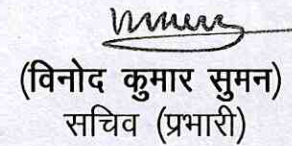 (विनोद कुमार सुमन)
सचिव (प्रभारी)